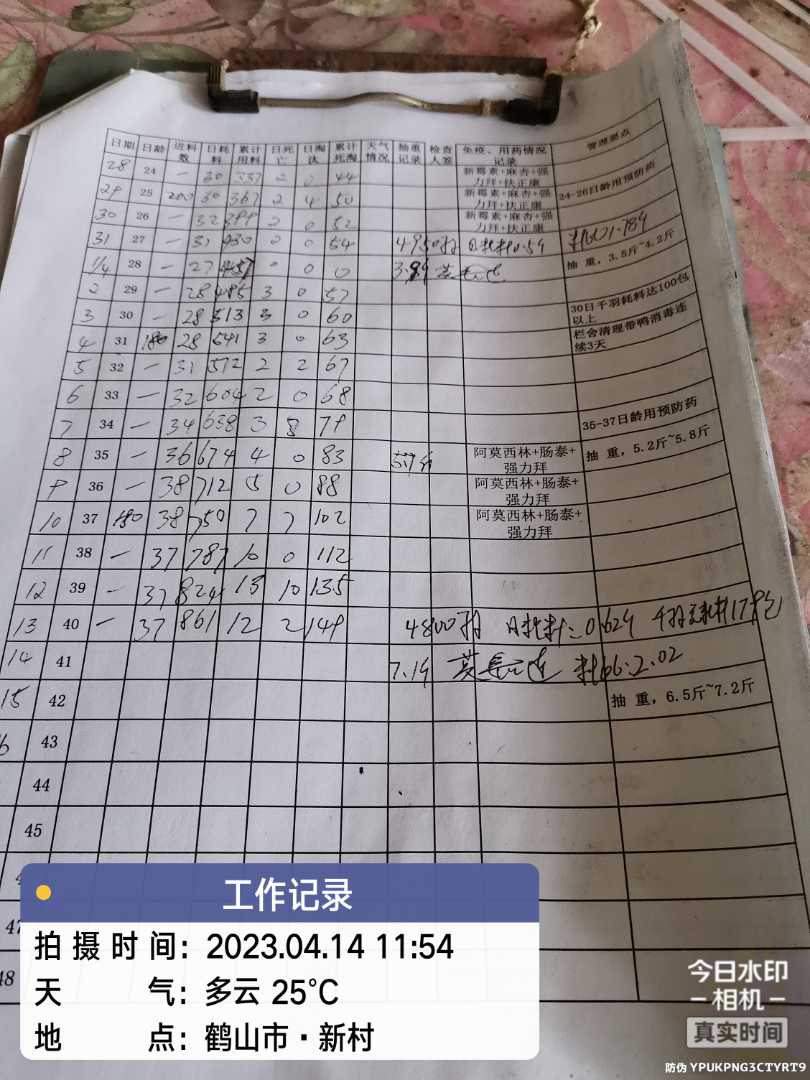 日期 日龄 进料数 日耗料 累计用料 日死亡 日淘汰 累计死淘 天气情况 抽重记录 检查人签 免疫、用药情况记录 管理要点
28 24 — 30 337 2 0 44 新霉素+麻杏+强力拜+扶正康
29 25 200 30 367 2 4 50 新霉素+麻杏+强力拜+扶正康 24-26日龄用预防药
30 26 — 32 399 2 0 52 新霉素+麻杏+强力拜+扶正康
31 27 — 31 430 2 0 54 4950 日耗料0.59
1/4 28 — 27 457 0 0 抽 重，3.5斤~4.2斤
2 29 — 28 485 3 0 57
3 30 — 28 513 3 0 60 30日千羽耗料达100包以上
4 31 180 28 541 3 0 63 栏舍清理带鸭消毒连续3天
5 32 — 31 572 2 2 67
6 33 — 32 604 2 0 68
7 34 — 34 638 3 8 79 35-37日龄用预防药
8 35 — 36 674 4 0 83 阿莫西林+肠泰+强力拜 抽 重，5.2斤~5.8斤
9 36 — 38 712 5 0 88 阿莫西林+肠泰+强力拜
10 37 180 38 750 7 7 102 阿莫西林+肠泰+强力拜
11 38 — 37 787 10 0 112
12 39 — 37 824 13 10 135
13 40 — 37 861 12 2 149 4800 日耗料:0.62
14 41 2.02
15 42 抽 重，6.5斤~7.2斤
43
44
45
工作记录
拍摄时间：2023.04.14 11:54
天 气：多云 25℃
地 点：鹤山市·新村
47
48
今日水印
相机
真实时间
防伪 YPUKPNG3CTYRT9